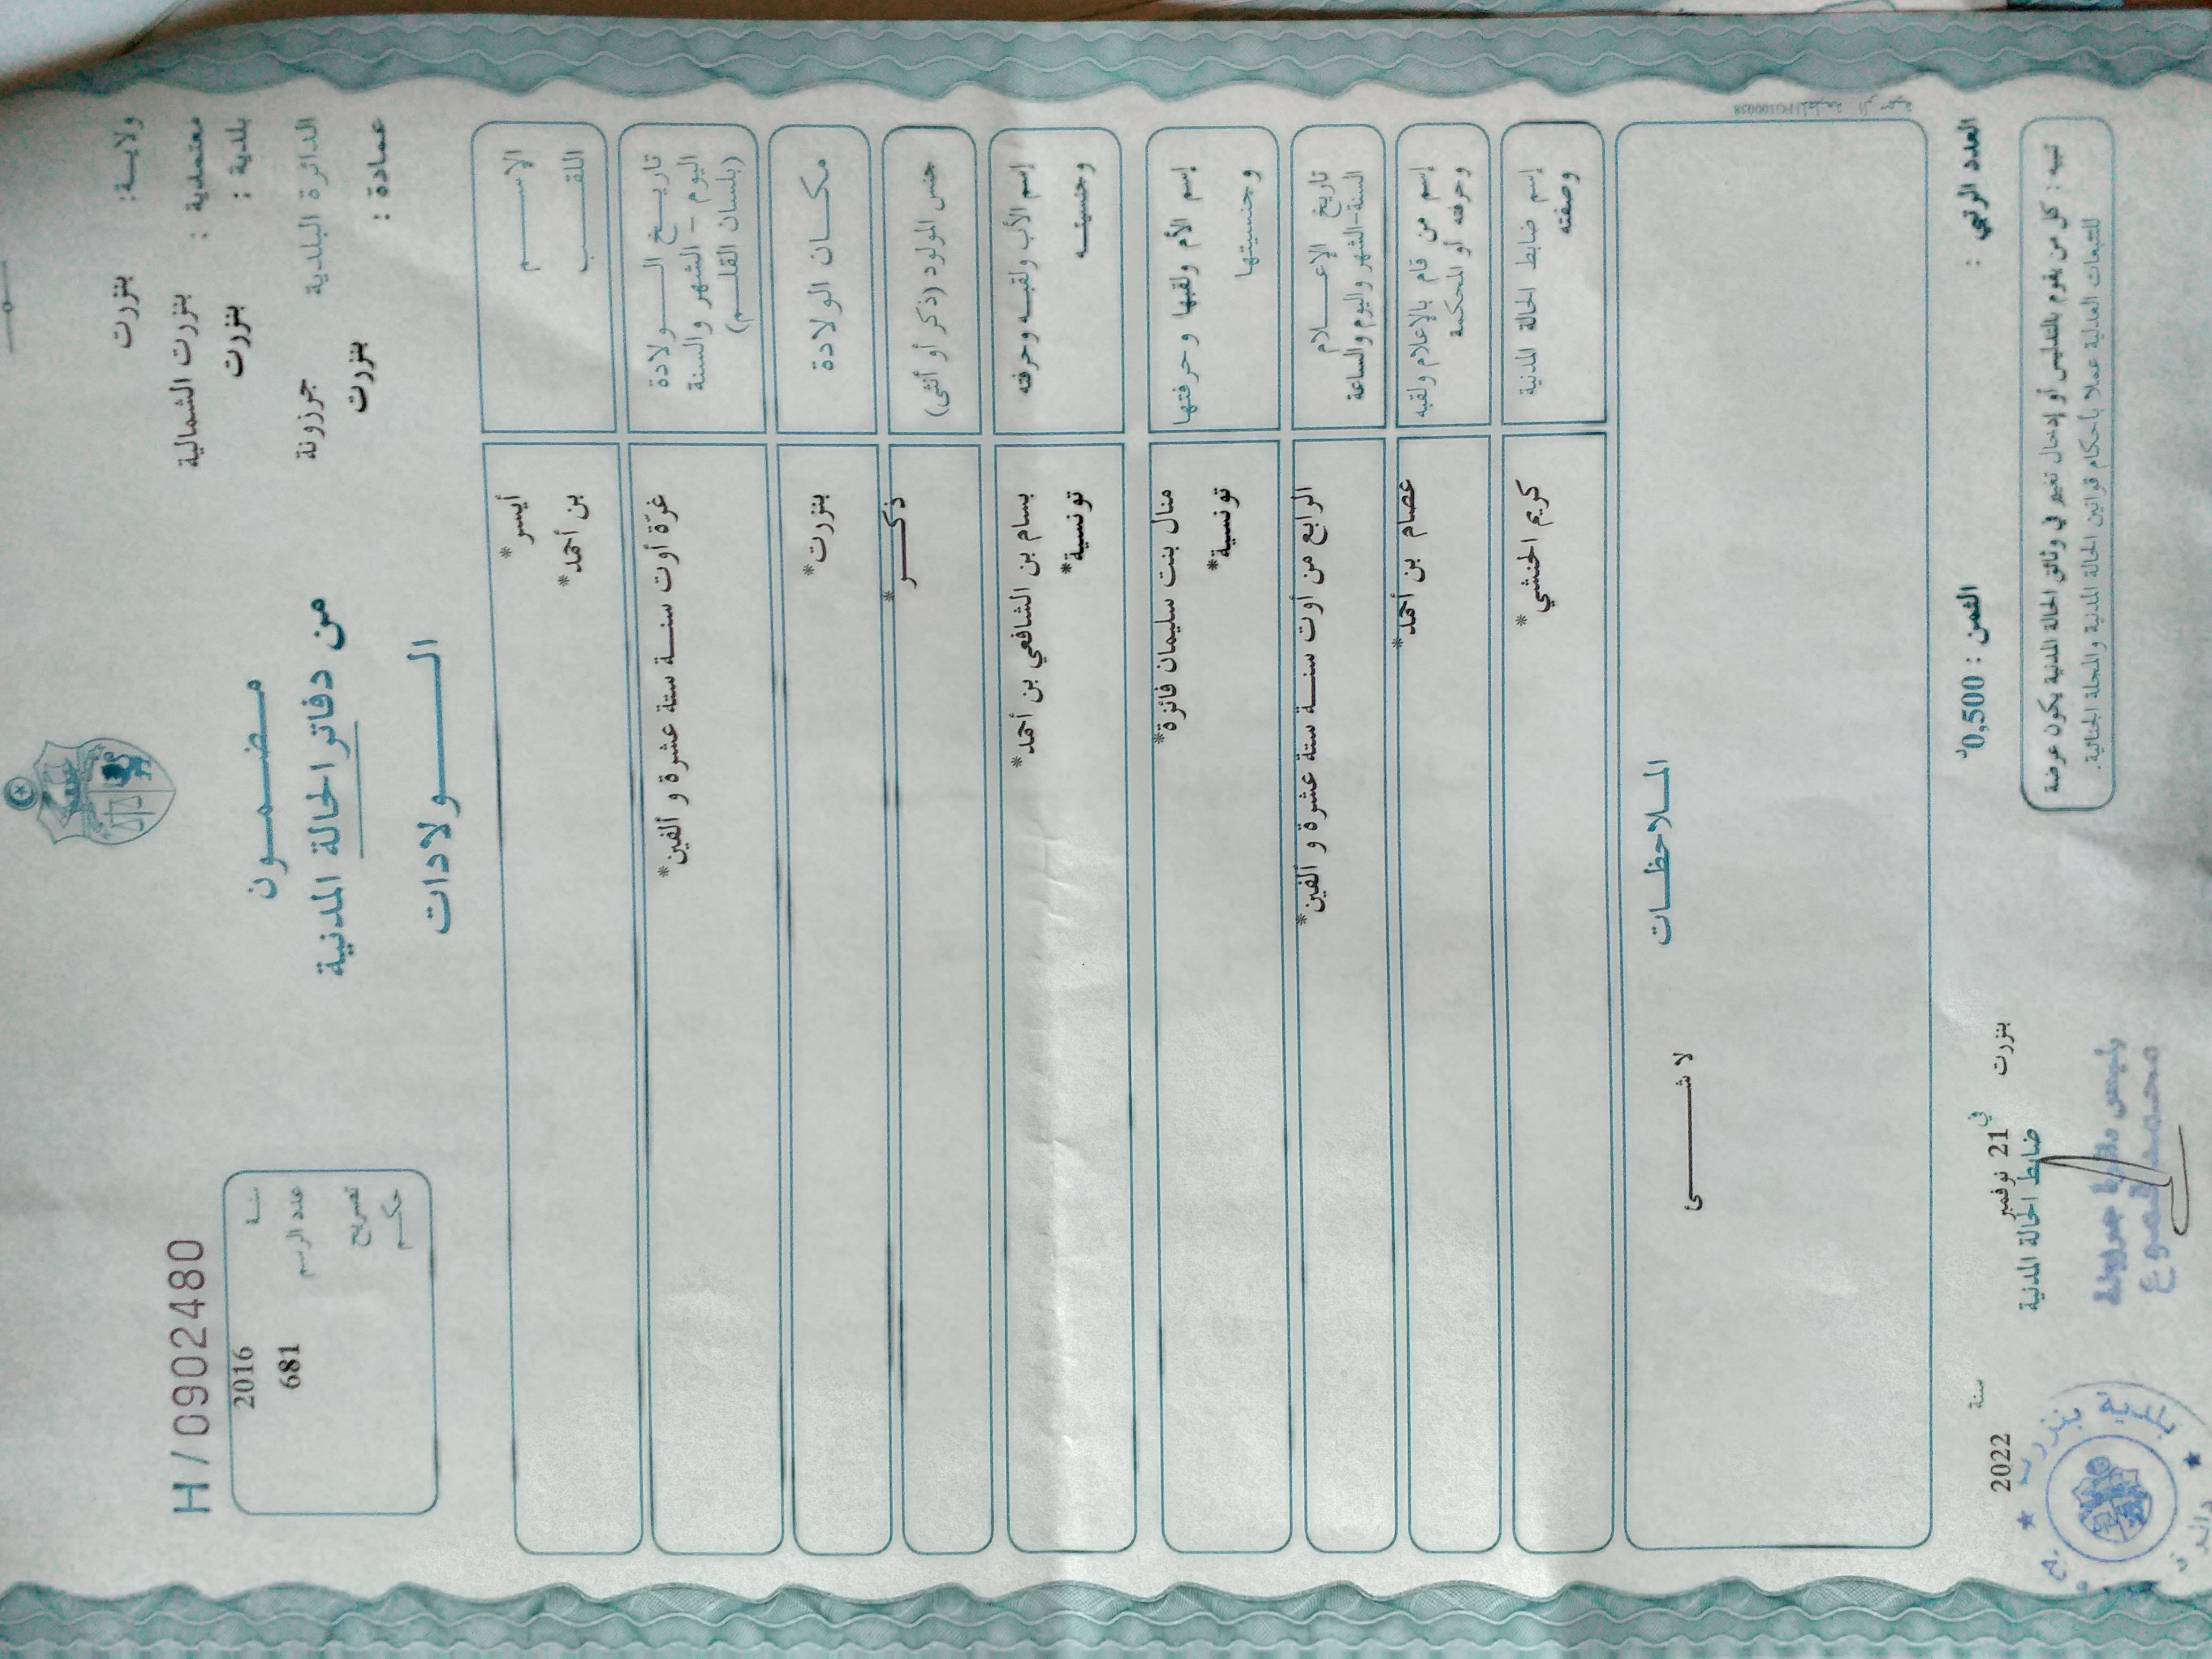 ولايــة: بنزرت
معتمدية : بنزرت الشمالية
بلدية : بنزرت
الدائرة البلدية جرزونة
عمادة : بنزرت
مـضـمـــون
من دفاتر الحالة المدنية
الـــــولادات
H / 0902480
سنــة 2016
عدد الرسم 681
تصريح
حكــم
الإســــم أيسر*
اللقـــب بن أحمد*
تاريــخ الــــولادة غرّة أوت سنــة ستة عشرة و ألفين*
اليوم – الشهر والسنة
(بلسان القلــم)
مكــان الولادة بنزرت*
جنس المولود (ذكر أو أنثى) ذكــــر*
إسم الأب ولقبــه وحرفته بسام بن الشافعي بن أحمد*
وجنسيتــه تونسية*
إسم الأم ولقبها وحرفتها منال بنت سليمان فائزة*
وجنسيتها تونسية*
تاريخ الإعــــلام الرابع من أوت سنــة ستة عشرة و ألفين*
السنة-الشهر واليوم والساعة
إسم من قام بالإعلام ولقبه عصام بن أحمد*
وحرفته أو المحكمة
إسم ضابط الحالة المدنية كريم الحنشي*
وصفته
المـلاحظــات
لا شـــــئ
العدد الرتبي :
الثمن : 0,500د
بنزرت في 21 نوفمبر سنة 2022
ضابط الحالة المدنية
محمد
تنبيه : كل من يقوم بالتدليس أو إدخال تغيير في وثائق الحالة المدنية يكون عرضة
للتتبعات العدلية عملا بأحكام قوانين الحالة المدنية والمجلة الجنائية.
بلدية بنزرت